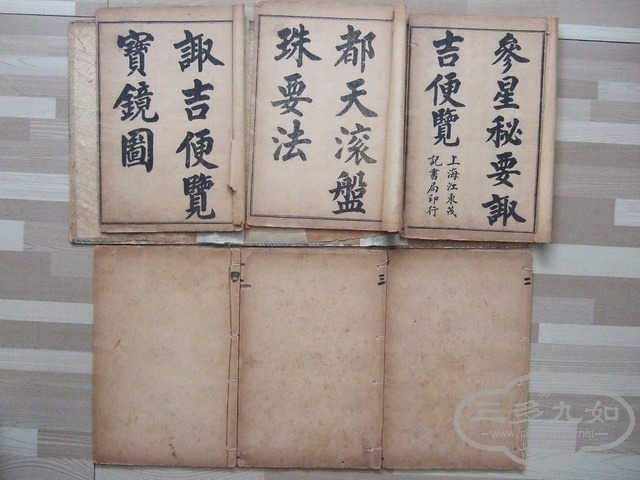 參星秘要諏
吉便覽
上海江東茂
記書局印行
都天滚盤
珠要法
諏吉便覽
寶鏡圖
二
三
四
三多九如